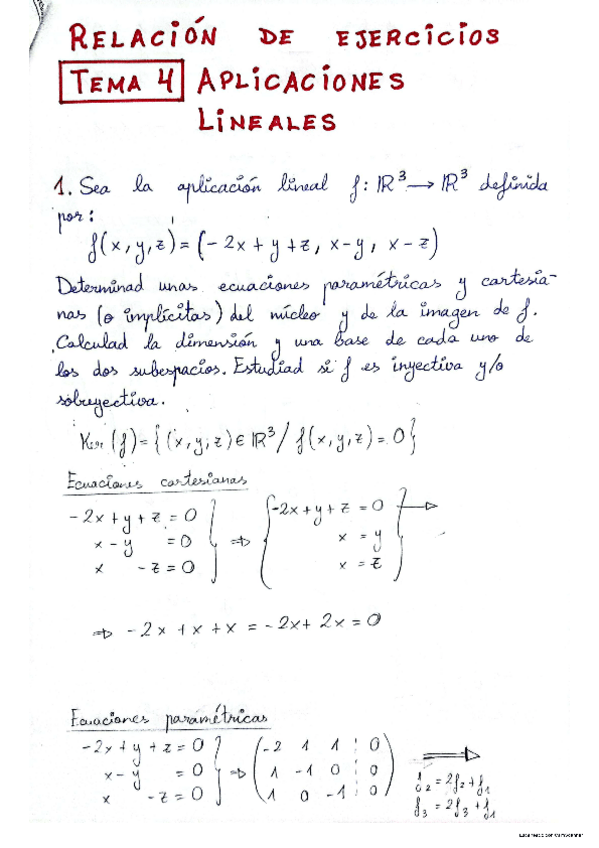 RELACIÓN DE EJERCICIOS
TEMA 4 APLICACIONES
LINEALES
1. Sea la aplicación lineal f: ℝ³ → ℝ³ definida
por:
f(x, y, z) = (-2x + y + z, x-y, x-z)
Determinad unas ecuaciones paramétricas y cartesia-
nas (o implícitas) del núcleo y de la imagen de f.
Calculad la dimensión y una base de cada uno de
los dos subespacios. Estudiad si f es inyectiva y/o
sobreyectiva.
Ker (f) = { (x, y, z) ∈ ℝ³ / f(x, y, z) = 0 }
Ecuaciones cartesianas
-2x + y + z = 0 } ⇒ { -2x + y + z = 0 } →
x - y = 0 } { x = y }
x - z = 0 } { x = z }
⇒ -2x + x + x = -2x + 2x = 0
Ecuaciones paramétricas
-2x + y + z = 0 } ⇒ ( -2 1 1 | 0 ) ⇒
x - y = 0 } ( 1 -1 0 | 0 ) f₂ = 2f₂ + f₁
x - z = 0 } ( 1 0 -1 | 0 ) f₃ = 2f₃ + f₁